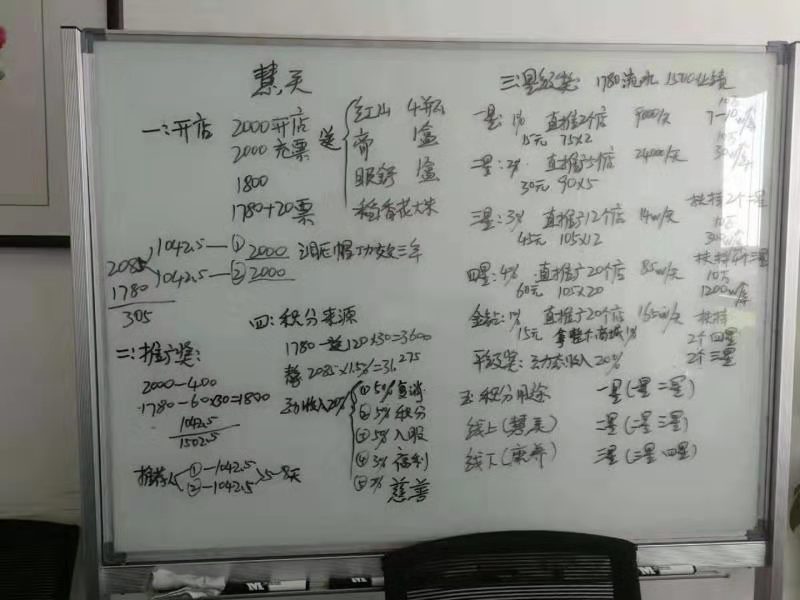 慧美
一:开店 2000开店 送 红山 4瓶
2000充票 膏 1盒
1800 眼舒 1盒
1780+20票 稻香花大米
1042.5—① 2000 功效三年
2085
1042.5—② 2000
1780
305
二:推广奖:
2000-400
1780-60×30=1800
1042.5
1502.5
推荐人 ①-1042.5 5-8天
②-1042.5
四:积分来源
1780-送120×30=3600
2085×1.5%=31.275
动收入20%
①5%
②5%积分
③5%入股
④3%福利
⑤2%慈善
三:星级奖: 1780流水 1500业绩
一星:1% 直推2个店 9000/天
15元 75×2
二星:2% 直推广5个店 24000/天
30元 90×5
扶持2个二星
三星:3% 直推广12个店 14w/天
45元 105×12
四星:4% 直推广20个店 85w/天
10万
60元 105×20 1200w/店
金钻:1% 直推广20个店 165w/天 扶持
15元 拿整个商城1% 2个四星
平级奖:动态收入20% 2个三星
五:积分用途 一星(一星 二星)
线上(慧美) 二星(二星 三星)
线下(康养) 三星(三星 四星)